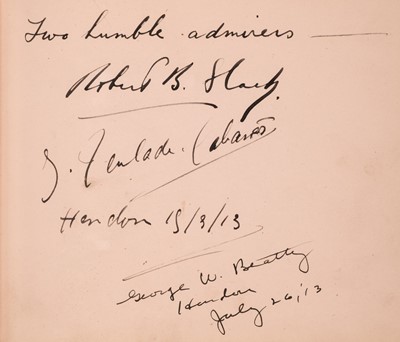 Two humble admirers —
Robert B. Slack.
Hendon 15/3/13
George W. Beatty
Hendon
July 26, '13